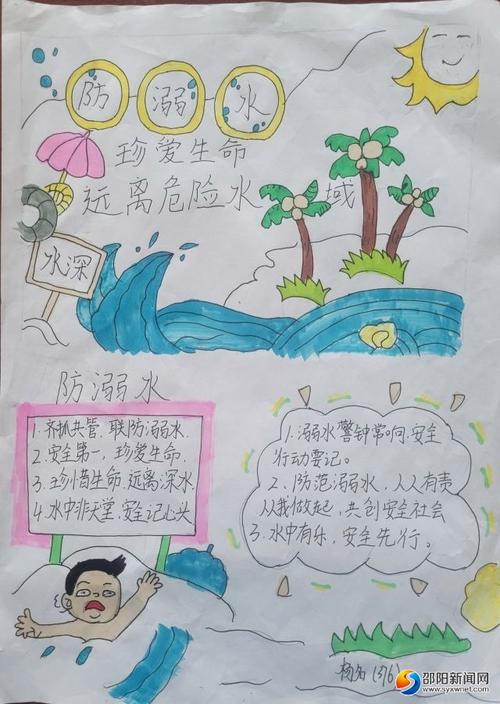 防溺水
珍爱生命
远离危险水域
水深
防溺水
1.齐抓共管,联防溺水.
2.安全第一,珍爱生命.
3.珍惜生命,远离深水
4.水中非天堂,安全记心头
1.溺水警钟常响,安全
行动要记。
2.防范溺水,人人有责
从我做起,共创安全社会
3.水中有乐,安全先行。
(376)
邵阳新闻网
www.syxwnet.com